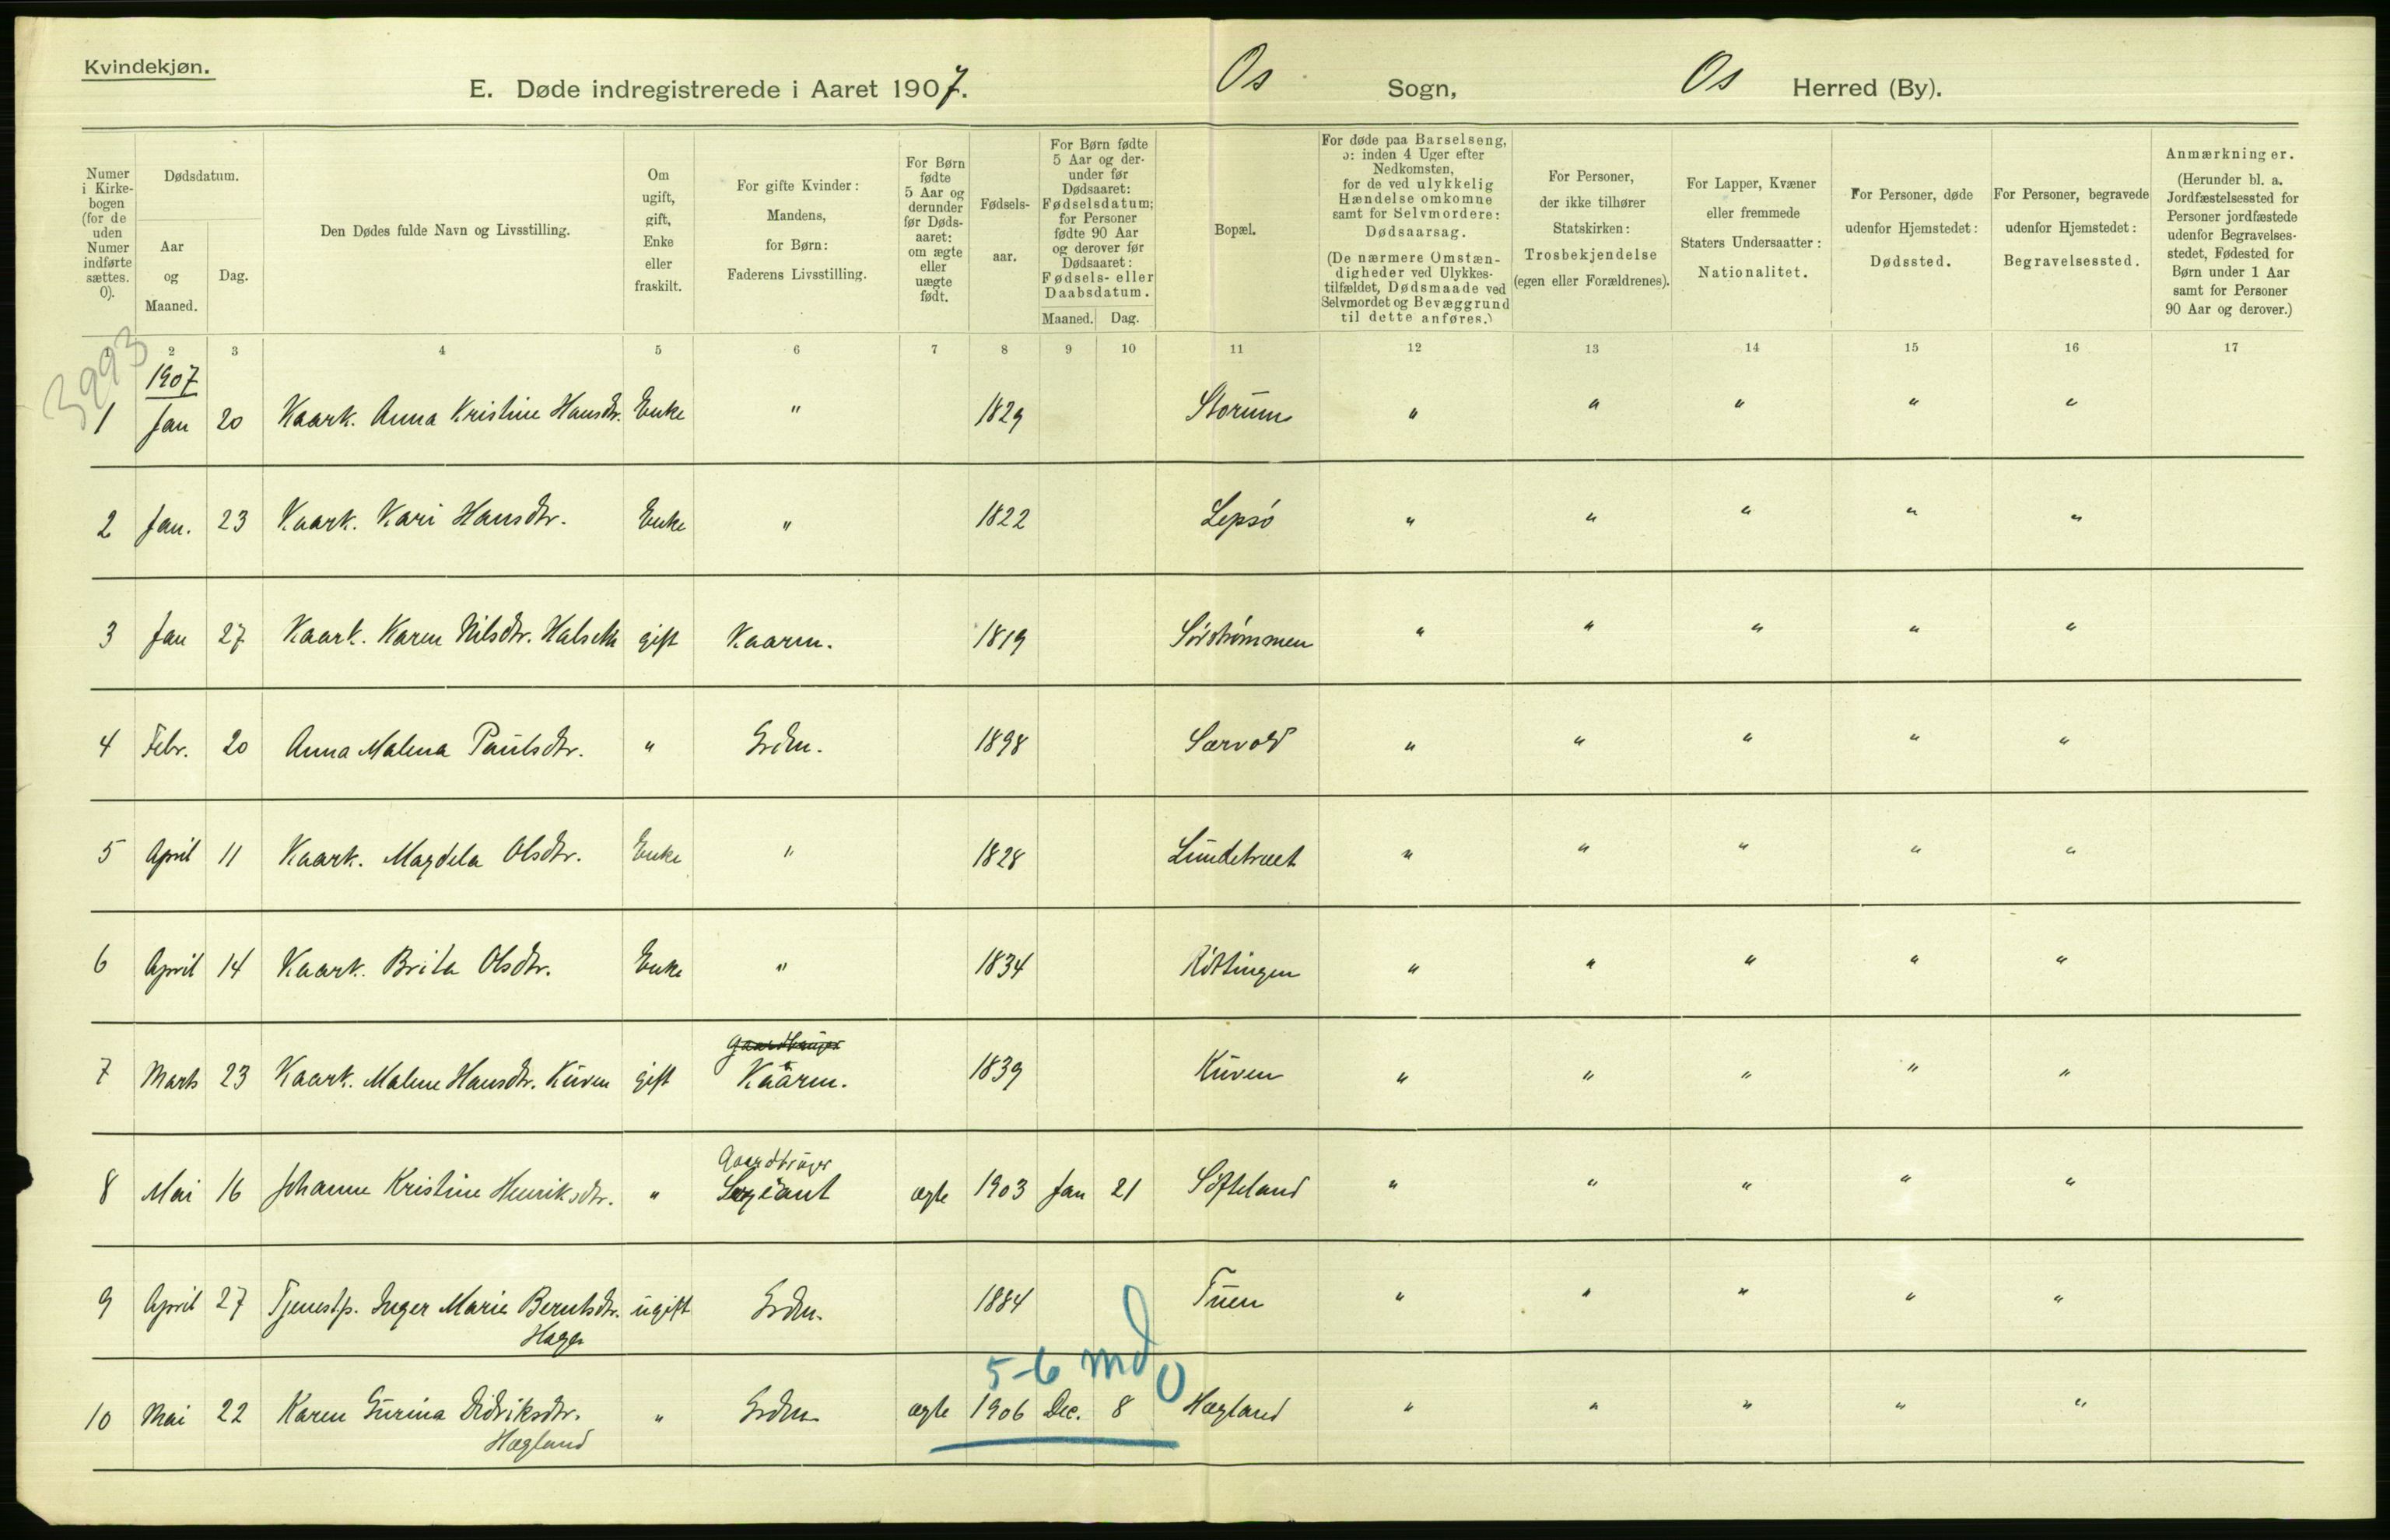 Kvindekjøn.
E. Døde indregistrerede i Aaret 1907. Os Sogn, Os Herred (By).
Numer i Kirkebogen (for de uden Numer indførte sættes. 0).
Dødsdatum.
Aar og Maaned.
Dag.
Den Dødes fulde Navn og Livsstilling.
Om ugift, gift, Enke eller fraskilt.
For gifte Kvinder: Mandens, for Børn: Faderens Livsstilling.
For Børn fødte 5 Aar og derunder før Dødsaaret: om ægte eller uægte født.
Fødselsaar.
For Børn fødte 5 Aar og derunder før Dødsaaret: Fødselsdatum; for Personer fødte 90 Aar og derover før Dødsaaret: Fødsels- eller Daabsdatum.
Maaned. Dag.
Bopæl.
For døde paa Barselseng, ɔ: inden 4 Uger efter Nedkomsten, for de ved ulykkelig Hændelse omkomne samt for Selvmordere: Dødsaarsag.
(De nærmere Omstændigheder ved Ulykkestilfældet, Dødsmaade ved Selvmordet og Bevæggrund til dette anføres.)
For Personer, der ikke tilhører Statskirken: Trosbekjendelse (egen eller Forældrenes).
For Lapper, Kvæner eller fremmede Staters Undersaatter: Nationalitet.
For Personer, døde udenfor Hjemstedet: Dødssted.
For Personer, begravede udenfor Hjemstedet: Begravelsessted.
Anmærkninger.
(Herunder bl. a. Jordfæstelsessted for Personer jordfæstede udenfor Begravelsesstedet, Fødested for Børn under 1 Aar samt for Personer 90 Aar og derover.)
1 2 3 4 5 6 7 8 9 10 11 12 13 14 15 16 17
3993
1907
1 Jan 20 Kaark. Anna Kristine Hansdtr. Enke " 1829 Storum " " " " "
2 Jan. 23 Kaark. Kari Hansdtr. Enke " 1822 Lepsö " " " " "
3 Jan 27 Kaark. Karen Nilsdtr. Halseth gift Kaarm. 1819 Sörströmmen " " " " "
4 Febr. 20 Anna Malena Paulsdtr. " Grdm. 1898 Særvold " " " " "
5 April 11 Kaark. Magdela Olsdtr. Enke " 1828 Lundetræet " " " " "
6 April 14 Kaark. Brita Olsdtr. Enke " 1834 Röttingen " " " " "
Gaardbruger
7 Marts 23 Kaark. Malene Hansdtr. Kuven gift Kaarm. 1839 Kuven " " " " "
Gaardbruger
8 Mai 16 Johanne Kristine Henriksdtr. " Sergeant ægte 1903 Jan 21 Söfteland " " " " "
9 April 27 Tjenestp. Inger Marie Berntsdtr. ugift Grdm. 1884 Tuen " " " " "
Hage
5-6 md 0
10 Mai 22 Karen Gurina Didriksdtr. " Grdm ægte 1906 Dec. 8 Hægland " " " " "
Hægland